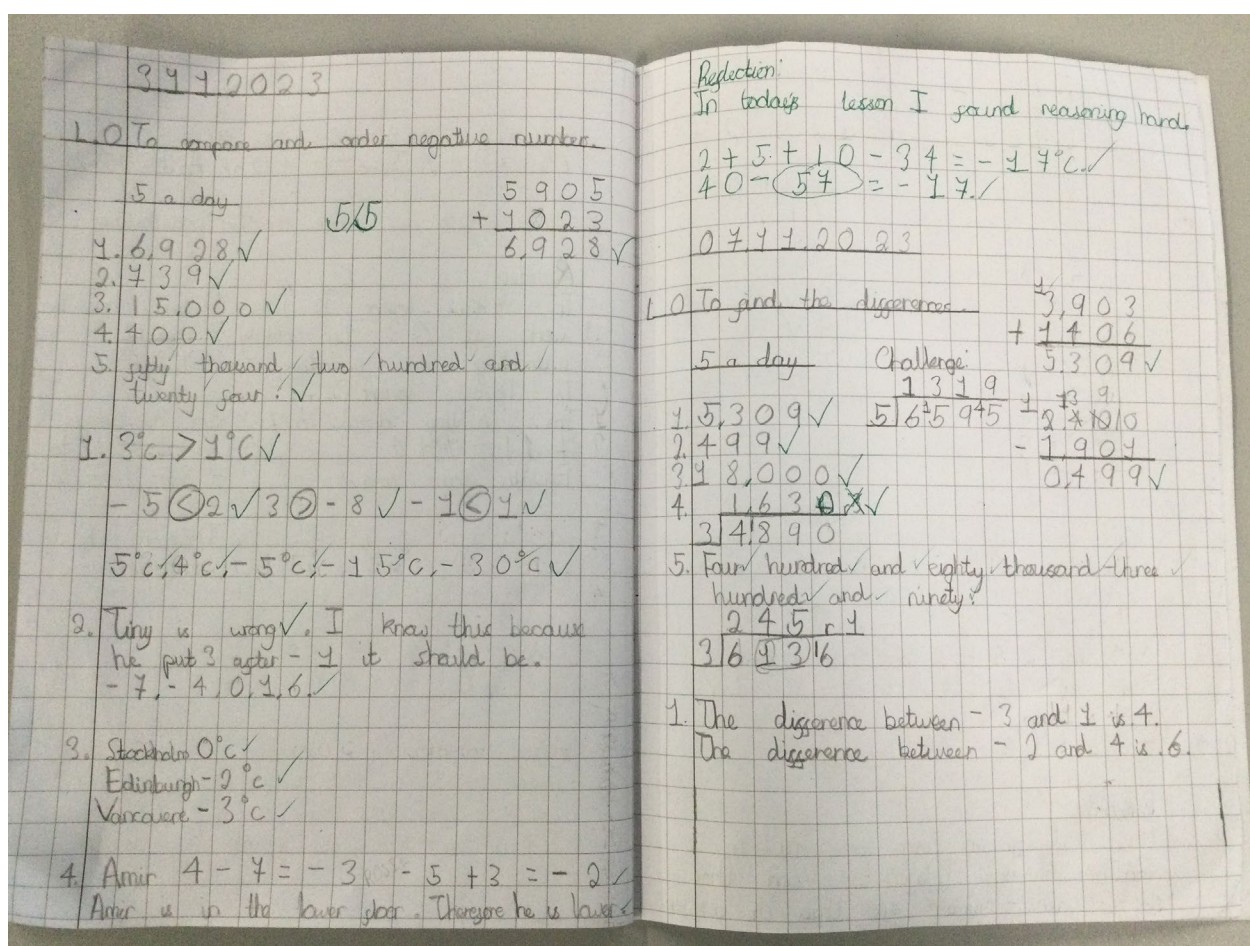 3 1 1 2 0 2 3
L.O To compare and order negative number.
5 a day
5/5
5 9 0 5
+ 1 0 2 3
6,9 2 8 ✓
1. 6,9 2 8 ✓
2. 7 3 9 ✓
3. 1 5,0 0 0 ✓
4. 4 0 0 ✓
5. fifty thousand two hundred and
twenty four. ✓
1. 3°c > 1°C ✓
- 5 < 2 ✓ 3 > - 8 ✓ - 1 < 1 ✓
5°c, 4°c, - 5°c, - 1 5°c, - 3 0°c ✓
2. Tiny is wrong ✓. I know this because
he put 3 after - 1 it should be.
- 7, - 4, 0, 1, 6. ✓
3. Stockholm 0°c ✓
Edinburgh - 2°c ✓
Vancouere - 3°c ✓
4. Amir 4 - 7 = - 3 - 5 + 3 = - 2 ✓
Amer is in the lower floor. Therefore he is lower ✓
Reflection:
In today's lesson I found reasoning hard.
2 + 5 + 1 0 - 3 4 = - 1 7°c. ✓
4 0 - 5 7 = - 1 7. ✓
0 7. 1 1. 2 0 2 3
L O To find the differences.
1
3,9 0 3
+ 1 4 0 6
5.3 0 9 ✓
5 a day
Challenge:
1 3 1 9
5 6 15 9 45
1. 5,3 0 9 ✓
2. 4 9 9 ✓
3. 1 8,0 0 0 ✓
- 1,9 0 1
0,4 9 9 ✓
4. 1,6 3 0 ✓
3 4 18 9 0
5. Four hundred and eighty thousand three
hundred and ninety.
2 4 5 r 1
3 6 1 3 16
1. The difference between - 3 and 1 is 4.
The difference between - 2 and 4 is 6.